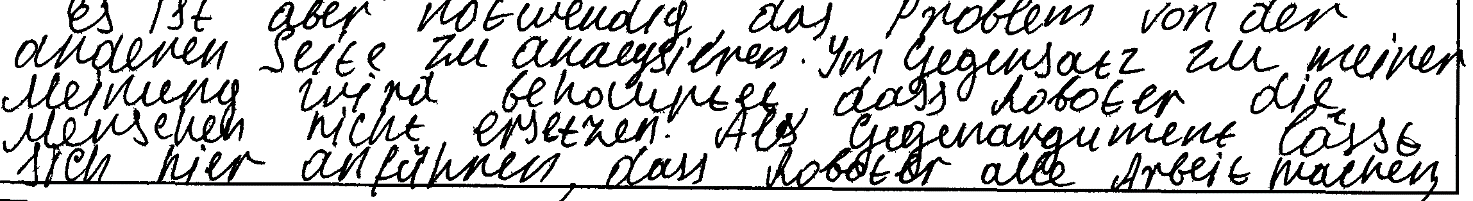 es ist aber notwendig das Problem von der
anderen Seite zu analysieren. Im Gegensatz zu meiner
Meinung wird behauptet, dass Roboter die
Menschen nicht ersetzen. Als Gegenargument lässt
sich hier anführen, dass Roboter alle Arbeit machen,